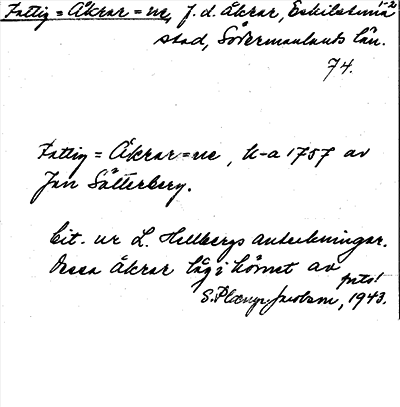 Fattig=Åkrar=ne, f.d. åkrar, Eskilstuna 1-2
stad, Södermanlands län.
74.
Fattig=Åkrar=ne, k-a 1757 av
Jan Sätterberg.
Cit. ur L. Hellbergs anteckningar.
Dessa åkrar låg i hörnet av
forts!
S. Jacobson, 1943.